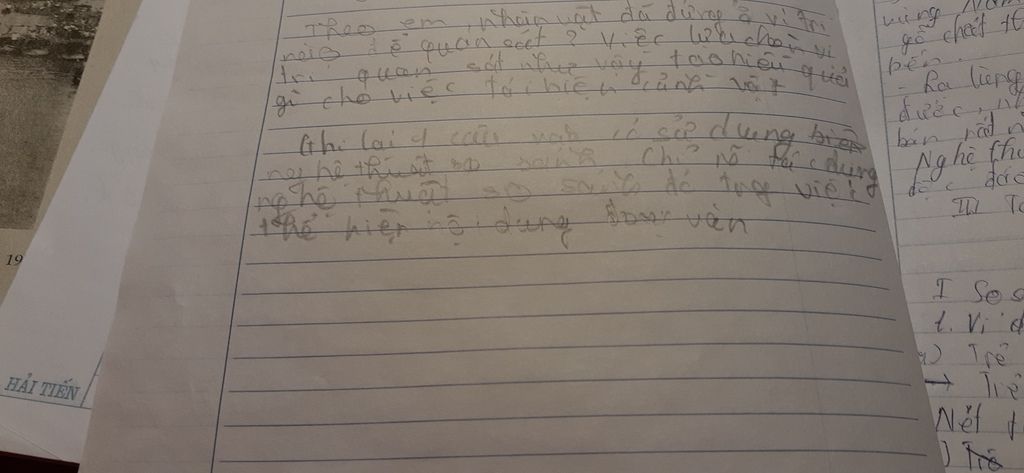 Theo em, nhân vật đã đứng ở vị trí
nào để quan sát? Việc lựa chọn vị
trí quan sát như vậy tạo hiệu quả
gì cho việc tái hiện cảnh vật
Ghi lại 1 câu văn có sử dụng biện
nghệ thuật so sánh Chỉ rõ tác dụng
nghệ thuật so sánh đó trong việc
thể hiện nội dung đoạn văn
19
HẢI TIẾN
vùng Năm
gỗ chất
bến.
- Ra
được,
bán
Nghệ thu
độc đáo
III
I So s
1. Ví d
Trẻ
→
Nét
Trẻ